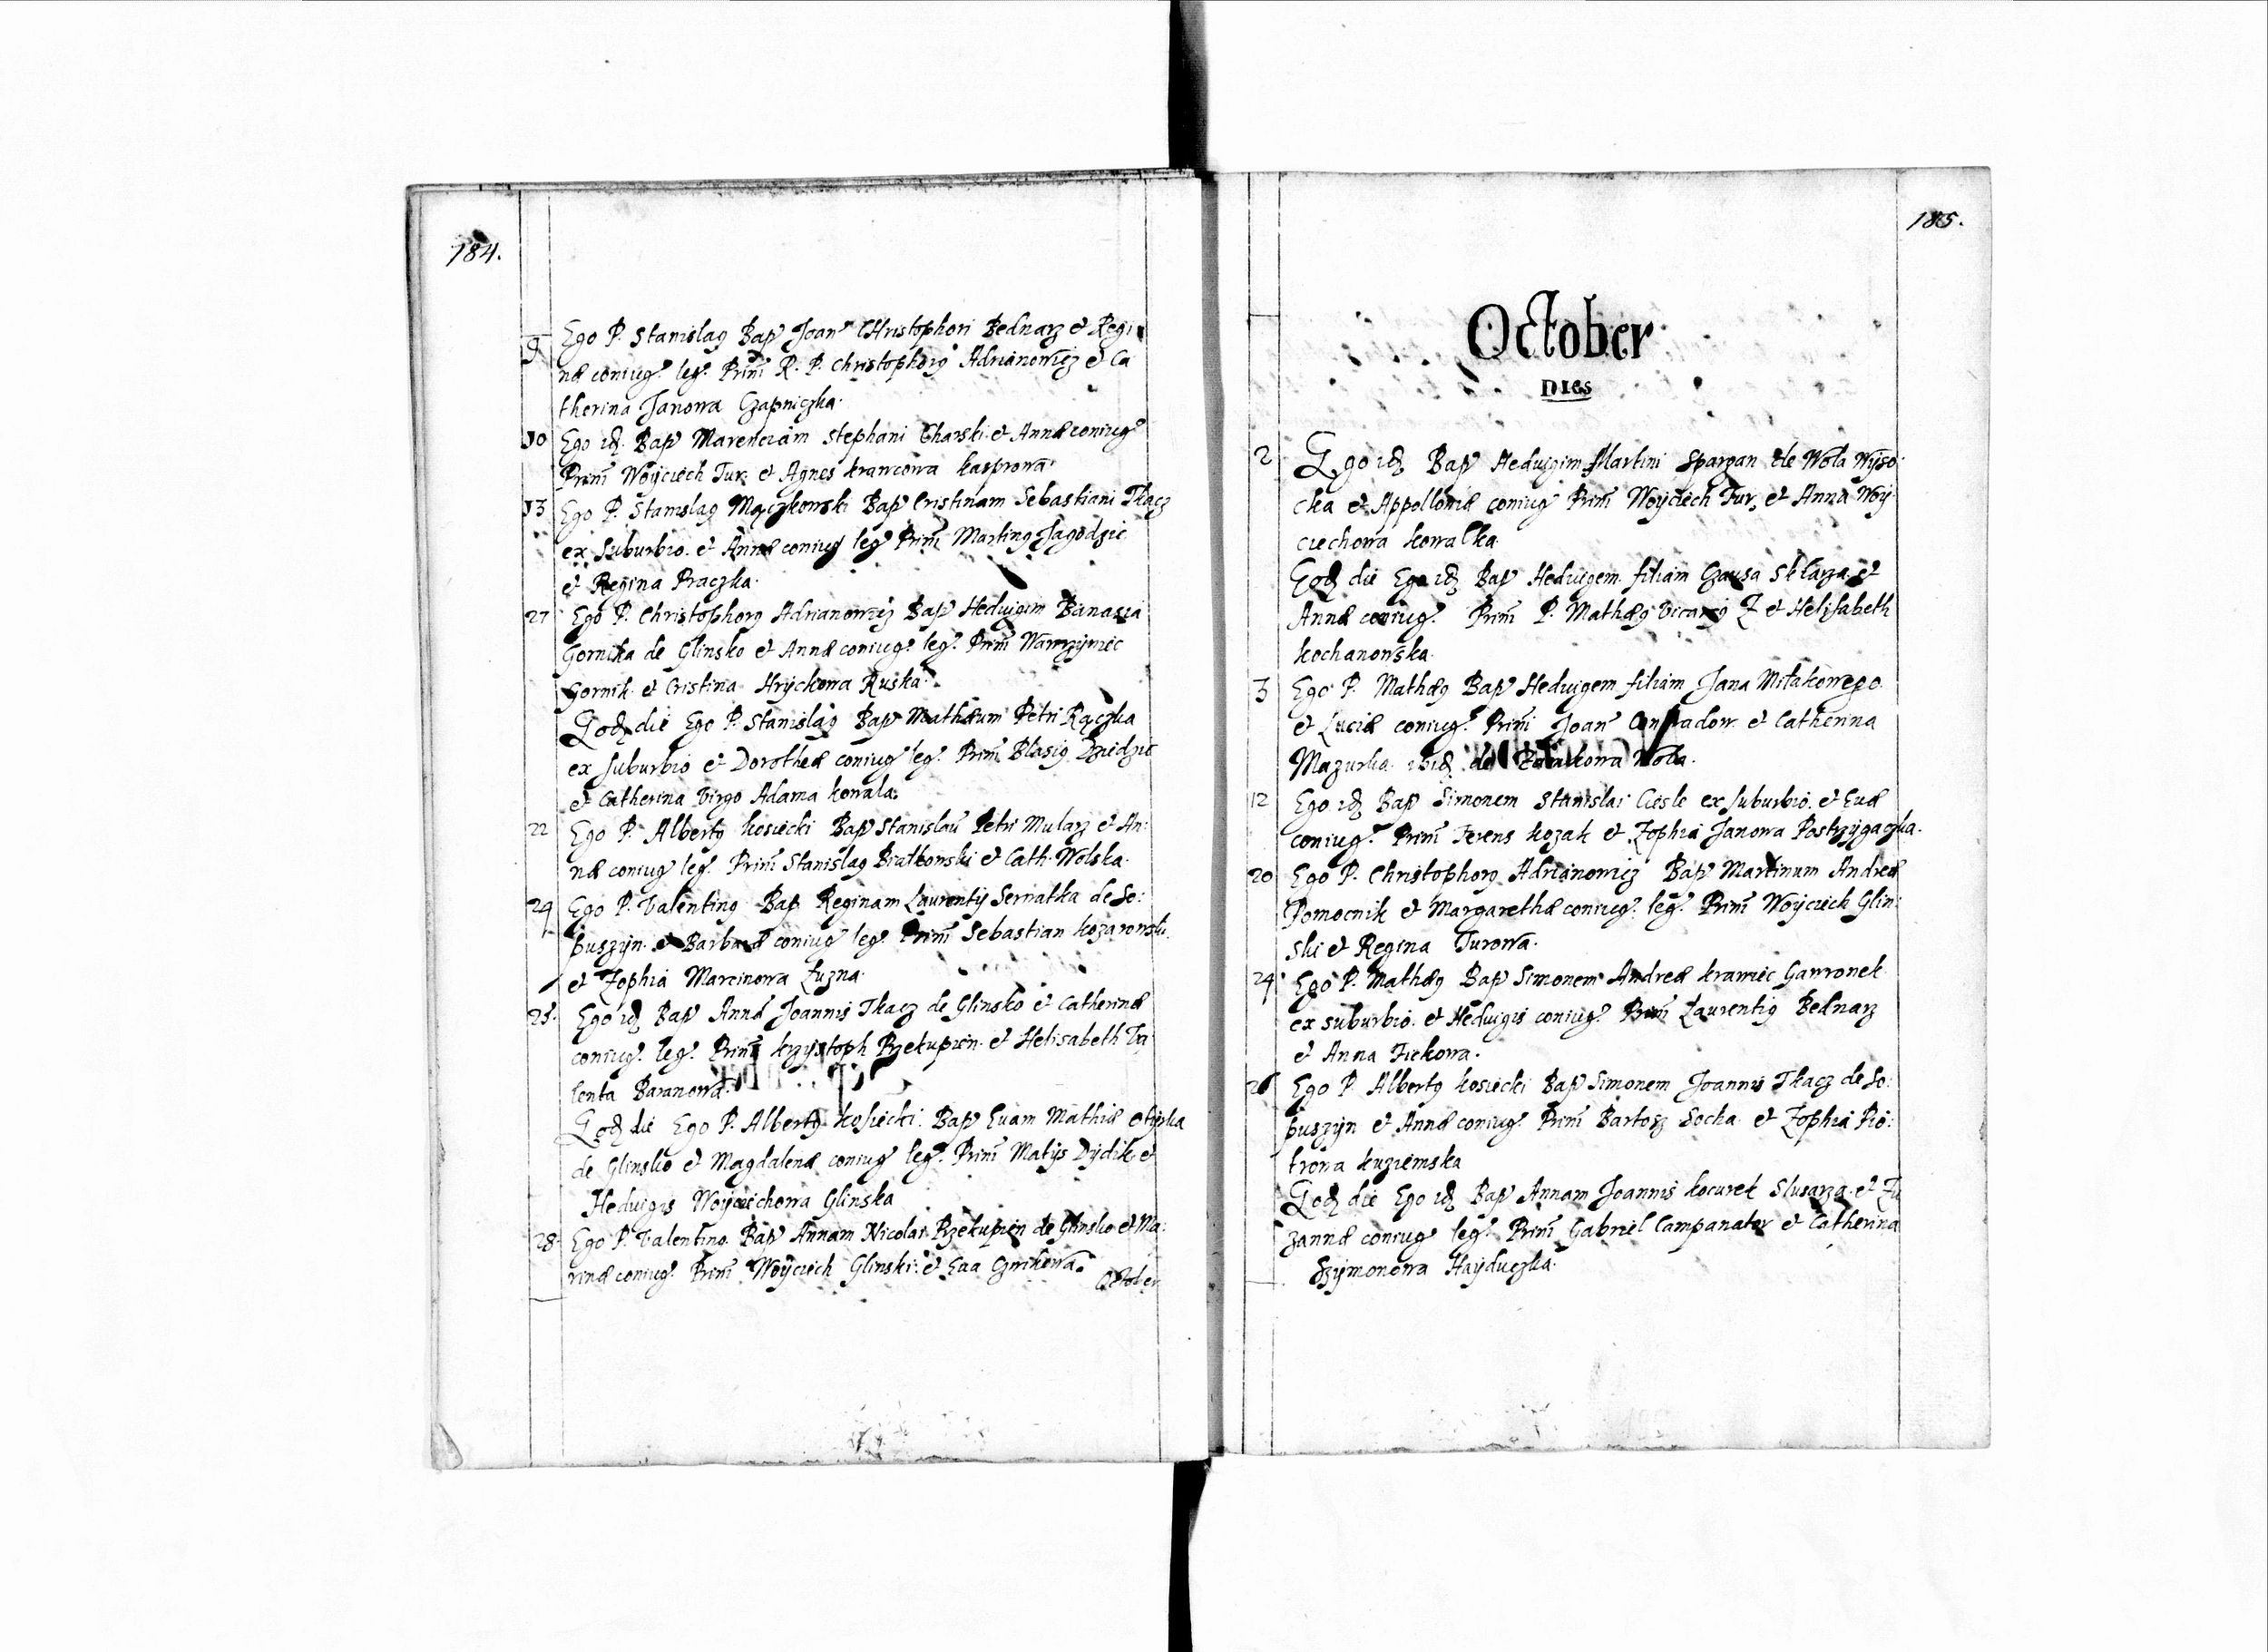 184.
9 Ego P. Stanislaꝰ Bap Joanē Christophori Bednarz et Regi
næ coniug. leg. Prim̄ R. P. Christophorꝰ Adrianowicz et Ca
therina Janowa Czapniczka.
10 Ego idē Bap Marencīam Stephani Charski et Annæ coniug
Prim̄ Woyciech Tur. et Agnes krawcowa kasprowa.
13 Ego P. Stanislaꝰ Mączkowski Bap Cristinam Sebastiani Tkacz
ex Suburbio. et Annæ coniug leg Prim̄ Martinꝰ Jagodzic
et Regina Praczka.
27 Ego P. Christophorꝰ Adrianowicz Bap Hedvigim
Gornika de Glinsko et Annæ coniug. leg. Prim̄ Wawrzyniec
Gornik et Cristina Hryckowa Ruska.
Eod die Ego P. Stanislaꝰ Bap Mathæum Petri Rączka
ex Suburbio et Dorotheæ coniug leg. Prim̄ Blasiꝰ Dziedzic
et Catherina Virgo Adama kowala.
22 Ego P. Albertꝰ kosiecki Bap Stanislaū Petri Mularz et An:
næ coniug leg. Prim̄ Stanislaꝰ Białkowski et Cath. Wolska.
24 Ego P. Valentinꝰ Bap Reginam Laurentij Sernatka de So:
puszyn. et Barbaræ coniug leg. Prim̄ Sebastian kozarowski.
et Zophia Marcinowa Luzna.
25. Ego idē Bap Annā Joannis Tkacz de Glinsko et Catherinæ
coniug. leg. Prim̄ krzysztoph Przekupien. et Helisabeth Va
lenta Baranowa.
Eod die Ego P. Albertꝰ kosiecki. Bap Evam Mathiæ
de Glinsko et Magdalenæ coniug leg. Prim̄ Matys Dydik et
Hedvigis Woyciechowa Glinska
28. Ego P. Valentinꝰ Bap Annam Nicolai Przekupien de Glinsko et Ma:
rinæ coniug. Prim̄ Woyciech Glinski. et Eva Cżwikowa.
October
185.
October
Dies
2 Ego idē Bap Hedvigim Martini Spargan de Wola Wyso
cka et Appolloniæ coniug Prim̄ Woyciech Tur, et Anna Woy
ciechowa kowalka.
Eod die Ego idē Bap Hedvigem filiam Czausa Sklarza. et
Annæ coniug. Prim̄ P. Mathæꝰ Vicariꝰ Z et Helizabeth
kochanowska.
3 Ego P. Mathæꝰ Bap Hedvigem filiam Jana Miłakowego.
et Luciæ coniug. Prim̄ Joanē et Catherina
Mazurka ibid. de Wola.
12 Ego idē Bap Simonem Stanislai Ciesle ex Suburbio. et Evæ
coniug. Prim̄ Ferens kozak et Zophia Janowa Postrzygaczka.
20 Ego P. Christophorꝰ Adrianowicz Bap Martinum Andreæ
Pomocnik et Margarethæ coniug. leg. Prim̄ Woyciech Glin:
ski et Regina Turowa.
24 Ego P. Mathæꝰ Bap Simonem Andreæ krawiec Gawronek
ex suburbio. et Hedvigis coniug. Prim̄ Laurentiꝰ Bednarz
et Anna Fickowa.
26 Ego P. Albertꝰ kosiecki Bap Simonem Joannis Tkacz de So:
puszyn et Annæ coniug. Prim̄ Bartosz Socha. et Zophia Pio:
trowa kuziemska
Eod die Ego idē Bap Annam Joannis kocurek Slusarza. et Zu
zannæ coniug leg. Prim̄ Gabriel Campanator et Catherina
Szymonowa Hayduczka.